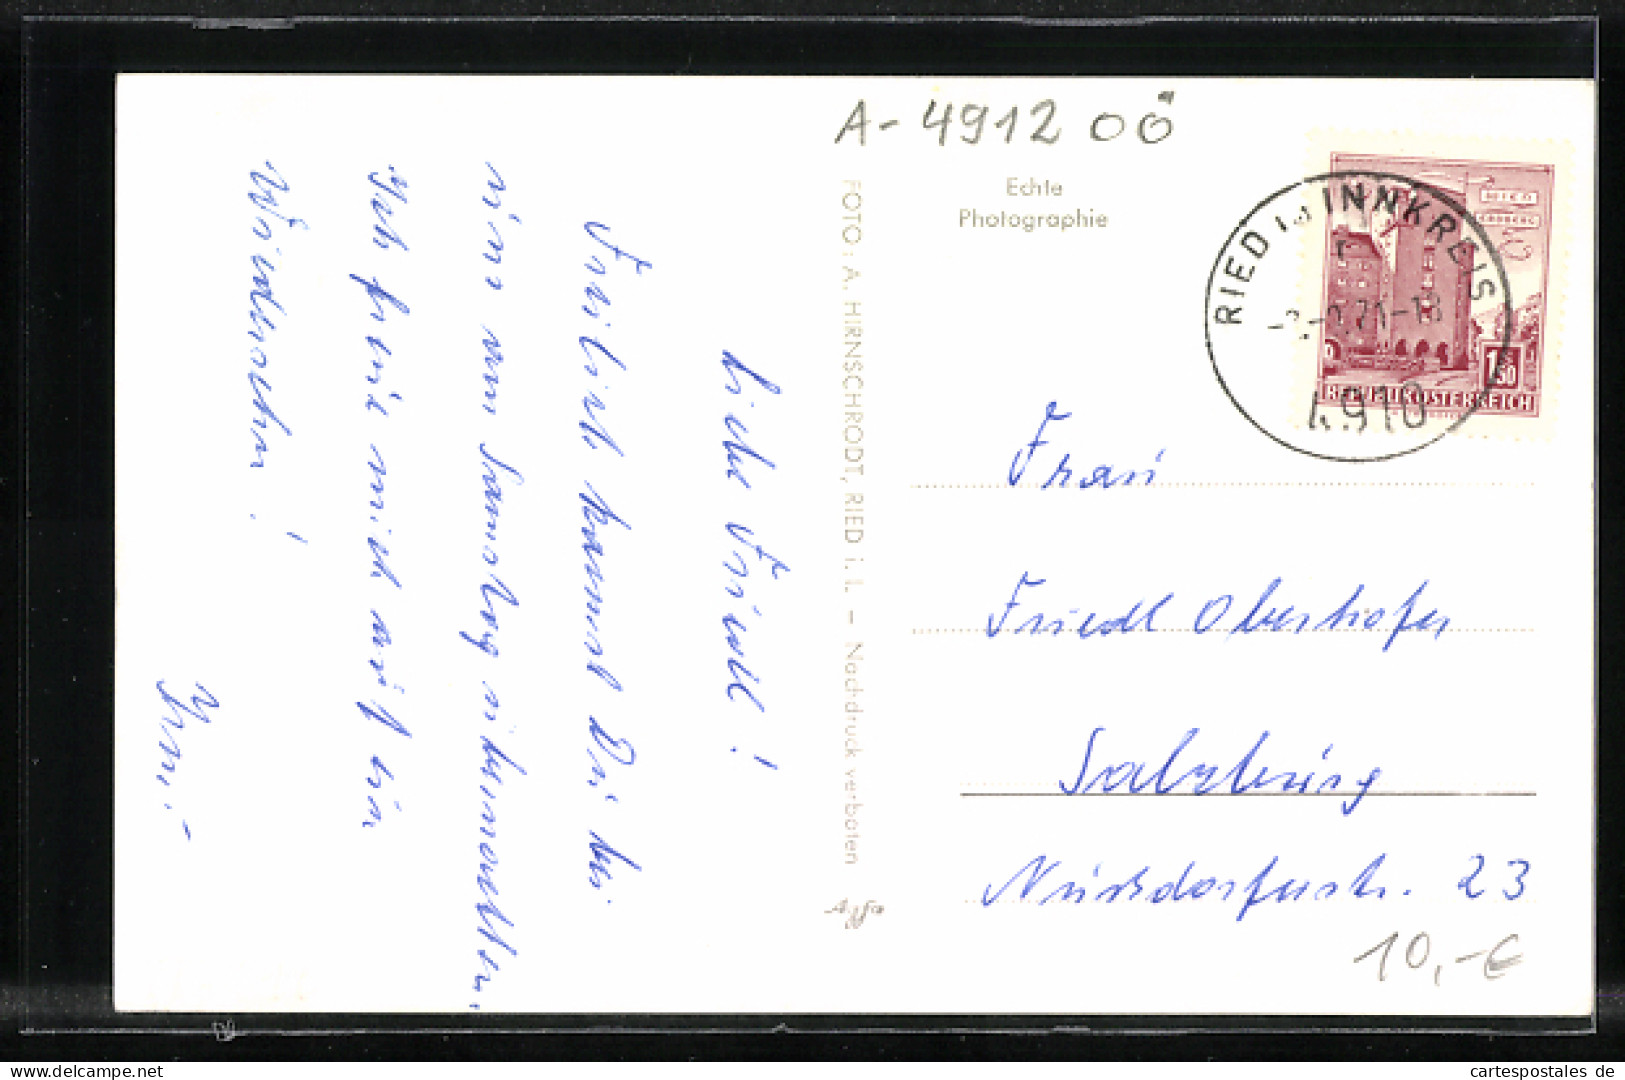 A-4912 OÖ
Echte
Photographie
RIED IM INNKREIS
4910
1.50
REPUBLIK ÖSTERREICH
FOTO: A. HIRNSCHRODT, RIED i. I. – Nachdruck verboten
Liebe Friedl!
Freilich kannst Du bei
uns am Samstag übernachten.
Ich freue mich auf ein
Wiedersehn!
Irmi.-
Frau
Friedl Oberhofer
Salzburg
Nußdorferstr. 23
10,-€
www.delcampe.net
cartespostales de